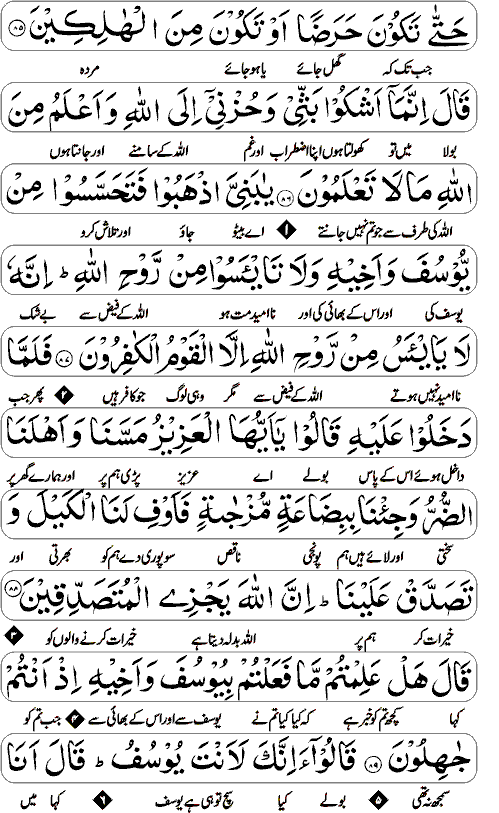 حَتّٰى تَكُوْنَ حَرَضًا اَوْ تَكُوْنَ مِنَ الْهٰلِكِيْنَ ۸۵
جب تک کہ گھل جائے یا ہو جائے مردہ
قَالَ اِنَّمَاۤ اَشْكُوْا بَثِّيْ وَحُزْنِيْۤ اِلَى اللّٰهِ وَاَعْلَمُ مِنَ
بولا میں تو کھولتا ہوں اپنا اضطراب اور غم اللہ کے سامنے اور جانتا ہوں
اللّٰهِ مَا لَا تَعْلَمُوْنَ ۸۶ يٰبَنِيَّ اذْهَبُوْا فَتَحَسَّسُوْا مِنْ
اللہ کی طرف سے جو تم نہیں جانتے ۱ اے بیٹو جاؤ اور تلاش کرو
يُّوْسُفَ وَاَخِيْهِ وَلَا تَايْئَسُوْا مِنْ رَّوْحِ اللّٰهِ ط اِنَّهٗ
یوسف کی اور اس کے بھائی کی اور ناامید مت ہو اللہ کے فیض سے بے شک
لَا يَايْئَسُ مِنْ رَّوْحِ اللّٰهِ اِلَّا الْقَوْمُ الْكٰفِرُوْنَ ۸۷ فَلَمَّا
ناامید نہیں ہوتے اللہ کے فیض سے مگر وہی لوگ جو کافر ہیں ۲ پھر جب
دَخَلُوْا عَلَيْهِ قَالُوْا يٰۤاَيُّهَا الْعَزِيْزُ مَسَّنَا وَاَهْلَنَا
داخل ہوئے اس کے پاس بولے اے عزیز پڑی ہم پر اور ہمارے گھر پر
الضُّرُّ وَجِئْنَا بِبِضَاعَةٍ مُّزْجٰىةٍ فَاَوْفِ لَنَا الْكَيْلَ وَ
سختی اور لائے ہیں ہم پونجی ناقص سو پوری دے ہم کو بھرتی اور
تَصَدَّقْ عَلَيْنَا ط اِنَّ اللّٰهَ يَجْزِى الْمُتَصَدِّقِيْنَ ۸۸
خیرات کر ہم پر اللہ بدلہ دیتا ہے خیرات کرنے والوں کو ۳
قَالَ هَلْ عَلِمْتُمْ مَّا فَعَلْتُمْ بِيُوْسُفَ وَاَخِيْهِ اِذْ اَنْتُمْ
کہا کچھ تم کو خبر ہے کہ کیا کیا تم نے یوسف سے اور اس کے بھائی سے ۴ جب تم کو
جٰهِلُوْنَ ۸۹ قَالُوْۤا ءَاِنَّكَ لَاَنْتَ يُوْسُفُ ط قَالَ اَنَا
سمجھ نہ تھی ۵ بولے کیا سچ تو ہی ہے یوسف ۶ کہا میں